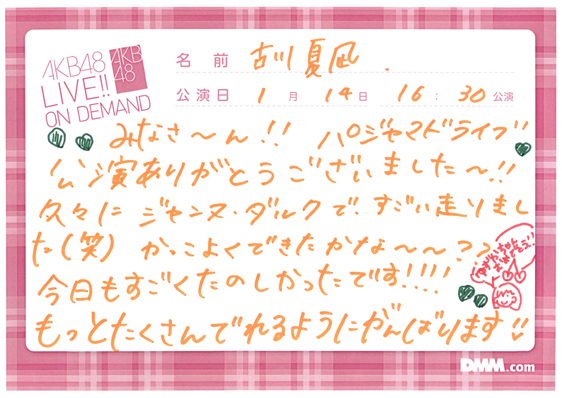 AKB48
LIVE!!
ON DEMAND
AKB
48
名前 古川夏凪.
公演日 1月14日 16:30公演
みなさ〜ん!! パジャマドライブ
公演ありがとうございました〜!!
久々にジャンヌ・ダルクで、すごい走りまし
た(笑) かっこよくできたかな〜〜??
今日もすごくたのしかったです!!!!
もっとたくさんでれるようにがんばります!!
DMM.com